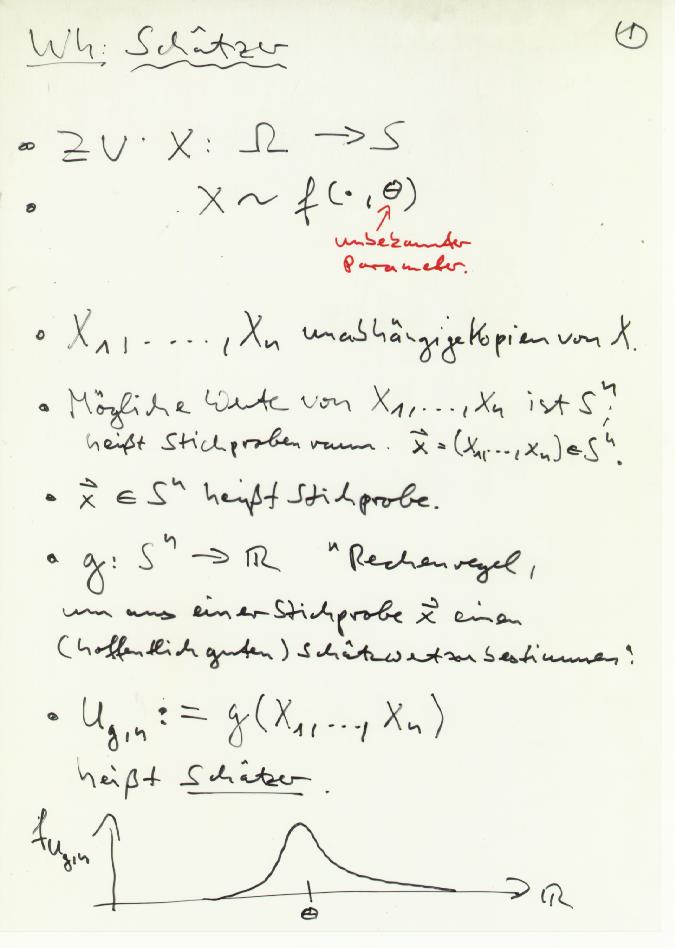 Wh: Schätzer
1
• ZV. X: Ω → S
• X ~ f(·, θ)
unbekannter
Parameter.
• X₁, ....., Xₙ unabhängige Kopien von X.
• Mögliche Werte von X₁, ..., Xₙ ist Sⁿ;
heißt Stichprobenraum. x⃗ = (x₁, ..., xₙ) ∈ Sⁿ.
• x⃗ ∈ Sⁿ heißt Stichprobe.
• g: Sⁿ → ℝ "Rechenregel,
um aus einer Stichprobe x⃗ einen
(hoffentlich guten) Schätzwert zu bestimmen"
• U_{g,n} := g(X₁, ..., Xₙ)
heißt Schätzer.
f_{U_{g,n}}
ℝ
θ